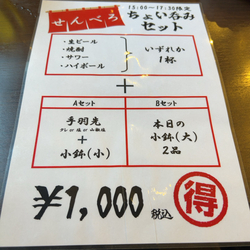 せんべろ
15:00~17:30限定
ちょい呑み
セット
・生ビール
・焼酎
・サワー
・ハイボール
いずれか
1杯
+
Aセット
手羽先
+
小鉢(小)
Bセット
本日の
小鉢(大)
2品
¥1,000
税込
得